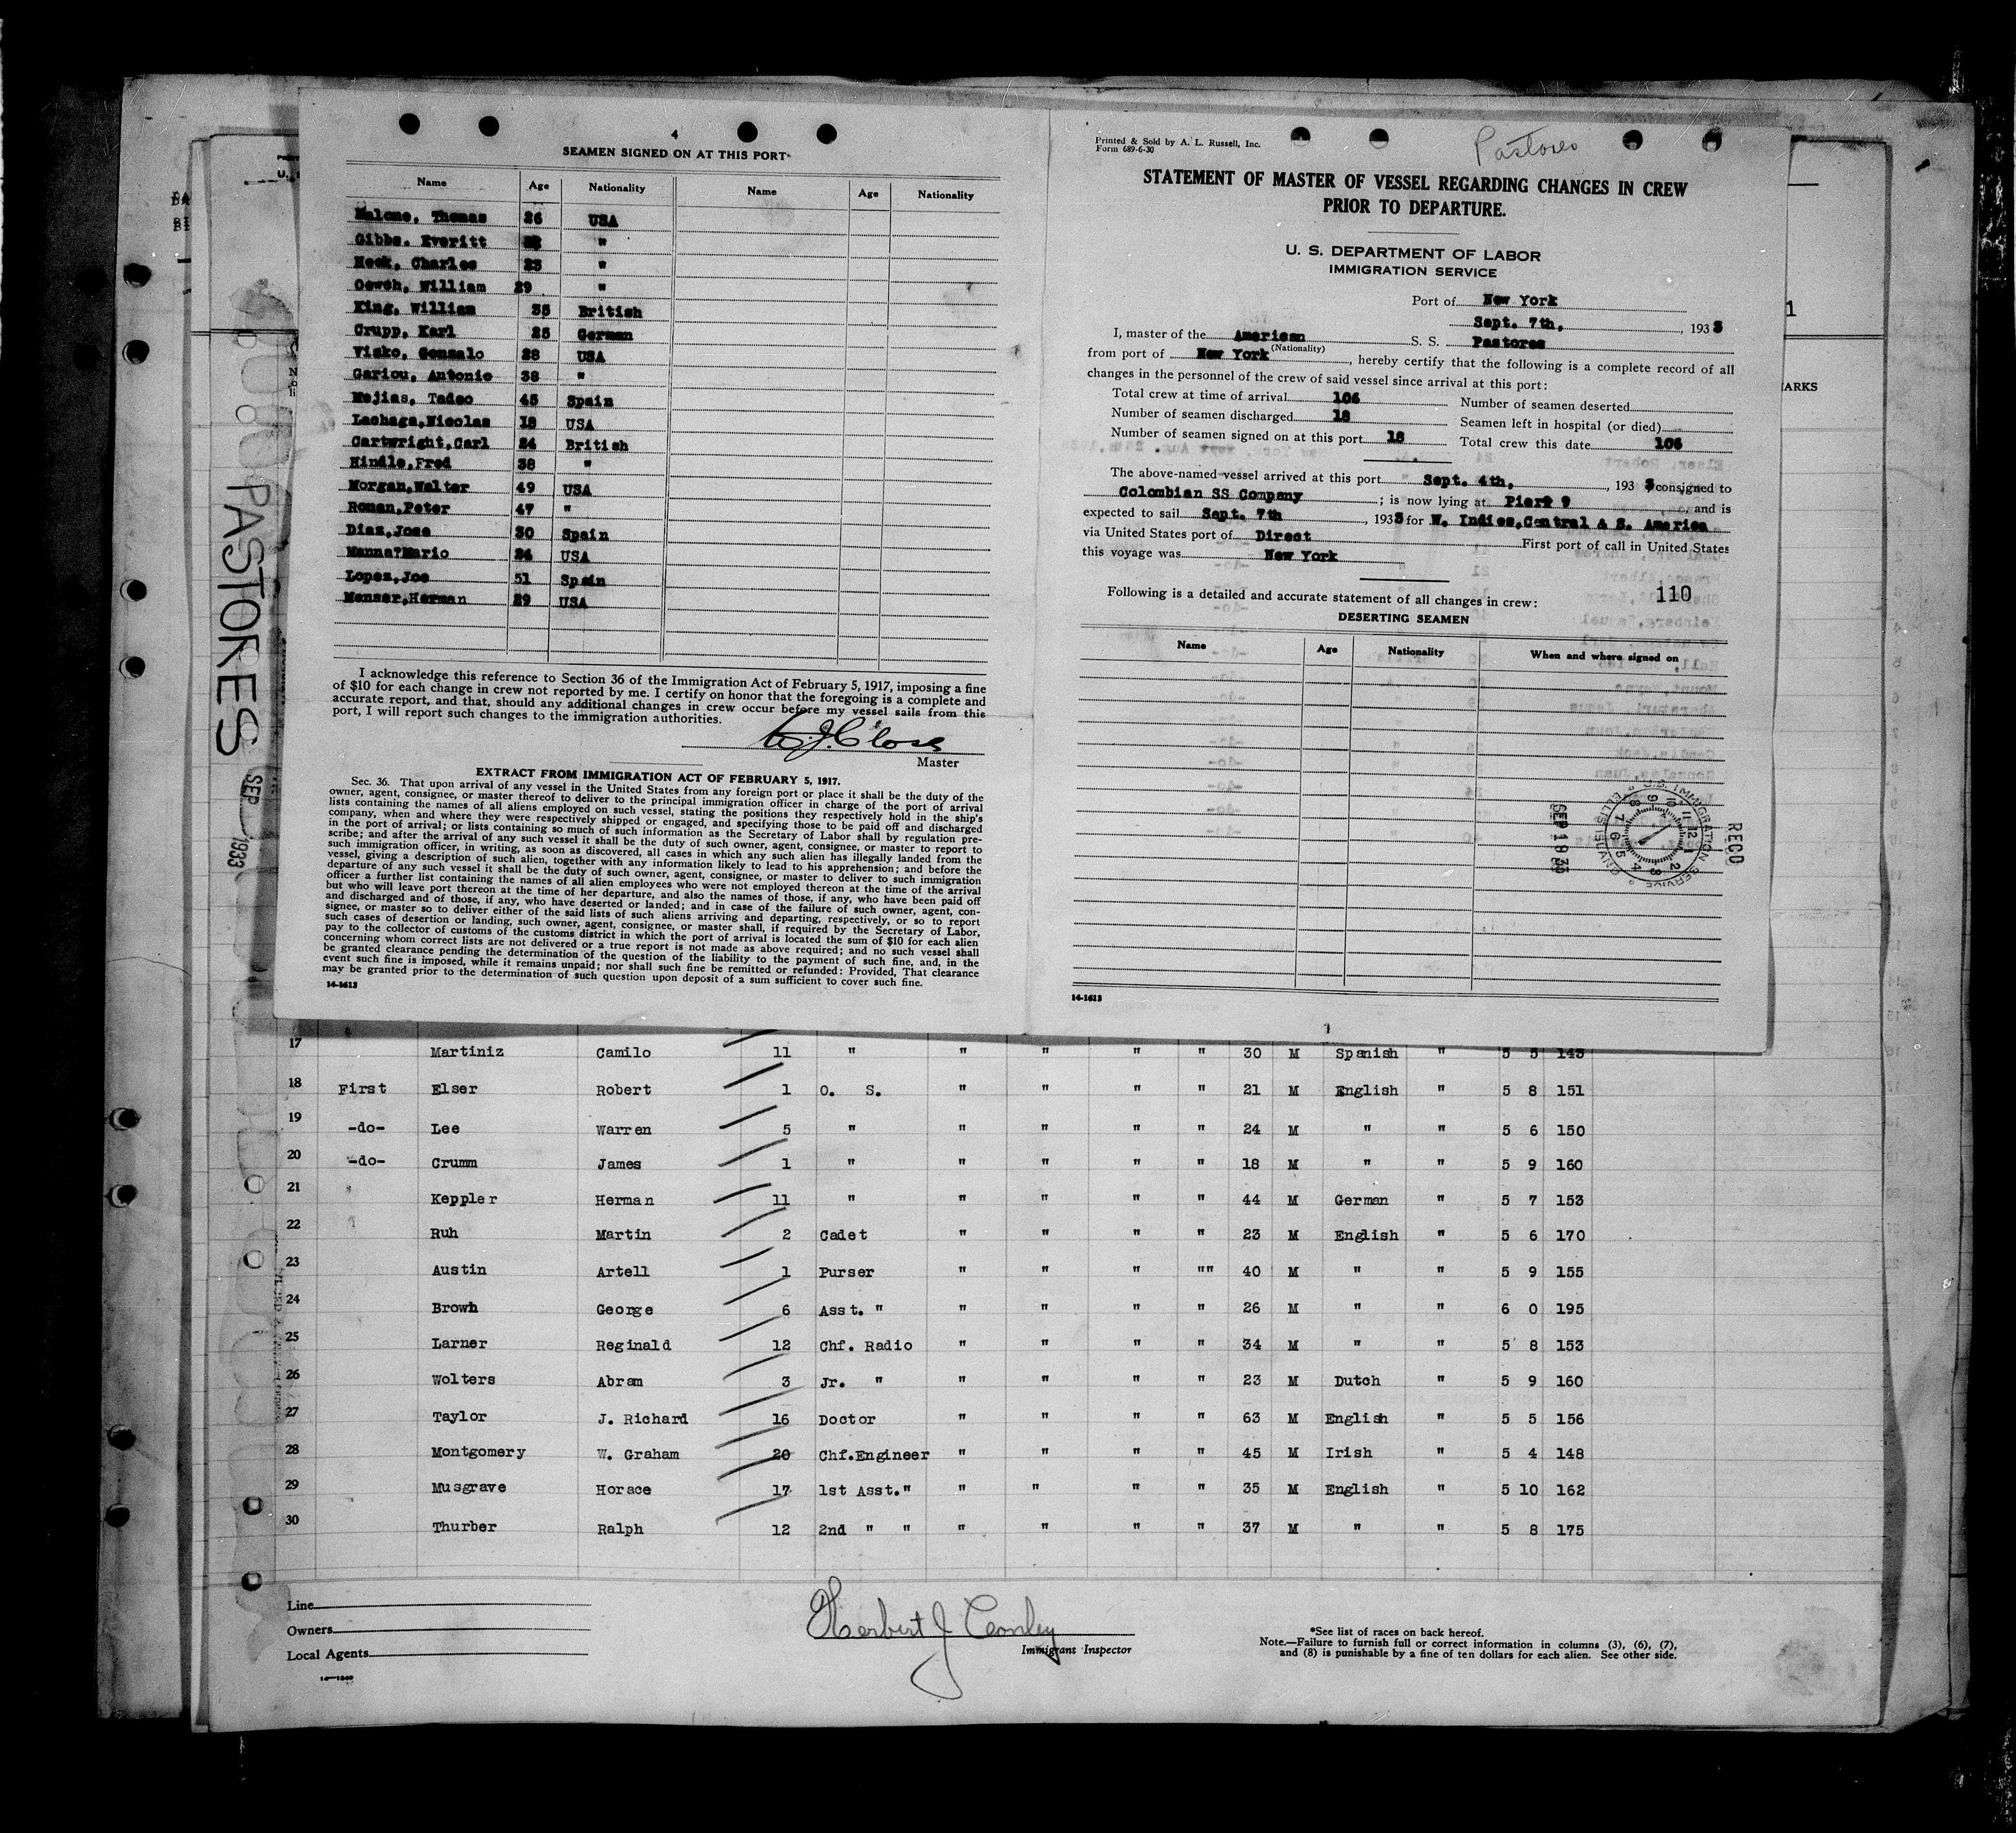 4
SEAMEN SIGNED ON AT THIS PORT
Name Age Nationality Name Age Nationality
Malone, Thomas 26 USA
Gibbs, Everitt "
Heck, Charles 23 "
Oeweh, William 29 "
King, William 35 British
Crupp, Karl 25 German
Visko, Gonsalo 28 USA
Gariou, Antonio 38 "
Mejias, Tadeo 45 Spain
Lachaga,Nicolas 18 USA
Cartwright,Carl 24 British
Hindle,Fred 38 "
Morgan,Walter 49 USA
Roman,Peter 47 "
Diaz,Jose 30 Spain
Manna?Mario 24 USA
Lopez,Joe 51 Spain
Menser,Herman 29 USA
I acknowledge this reference to Section 36 of the Immigration Act of February 5, 1917, imposing a fine
of $10 for each change in crew not reported by me. I certify on honor that the foregoing is a complete and
accurate report, and that, should any additional changes in crew occur before my vessel sails from this
port, I will report such changes to the immigration authorities.
Master
EXTRACT FROM IMMIGRATION ACT OF FEBRUARY 5, 1917.
Sec. 36. That upon arrival of any vessel in the United States from any foreign port or place it shall be the duty of the
owner, agent, consignee, or master thereof to deliver to the principal immigration officer in charge of the port of arrival
lists containing the names of all aliens employed on such vessel, stating the positions they respectively hold in the ship's
company, when and where they were respectively shipped or engaged, and specifying those to be paid off and discharged
in the port of arrival; or lists containing so much of such information as the Secretary of Labor shall by regulation pre-
scribe; and after the arrival of any such vessel it shall be the duty of such owner, agent, consignee, or master to report to
such immigration officer, in writing, as soon as discovered, all cases in which any such alien has illegally landed from the
vessel, giving a description of such alien, together with any information likely to lead to his apprehension; and before the
departure of any such vessel it shall be the duty of such owner, agent, consignee, or master to deliver to such immigration
officer a further list containing the names of all alien employees who were not employed thereon at the time of the arrival
but who will leave port thereon at the time of her departure, and also the names of those, if any, who have been paid off
and discharged and of those, if any, who have deserted or landed; and in case of the failure of such owner, agent, con-
signee, or master so to deliver either of the said lists of such aliens arriving and departing, respectively, or so to report
such cases of desertion or landing, such owner, agent, consignee, or master shall, if required by the Secretary of Labor,
pay to the collector of customs of the customs district in which the port of arrival is located the sum of $10 for each alien
concerning whom correct lists are not delivered or a true report is not made as above required; and no such vessel shall
be granted clearance pending the determination of the question of the liability to the payment of such fine, and, in the
event such fine is imposed, while it remains unpaid; nor shall such fine be remitted or refunded: Provided, That clearance
may be granted prior to the determination of such question upon deposit of a sum sufficient to cover such fine.
14-1613
Printed & Sold by A. L. Russell, Inc.
Form 689-6-30
Pastores
STATEMENT OF MASTER OF VESSEL REGARDING CHANGES IN CREW
PRIOR TO DEPARTURE.
U. S. DEPARTMENT OF LABOR
IMMIGRATION SERVICE
Port of New York
Sept. 7th, , 1933
I, master of the American S. S. Pastores
(Nationality)
from port of New York , hereby certify that the following is a complete record of all
changes in the personnel of the crew of said vessel since arrival at this port:
Total crew at time of arrival 106 Number of seamen deserted
Number of seamen discharged 18 Seamen left in hospital (or died)
Number of seamen signed on at this port 18 Total crew this date 106
The above-named vessel arrived at this port Sept. 4th, , 193 3 consigned to
Colombian SS Company ; is now lying at Pier? 9 , and is
expected to sail Sept. 7th , 1933 for W. Indies,Central & S. America
via United States port of Direct First port of call in United States
this voyage was New York
Following is a detailed and accurate statement of all changes in crew: 110
DESERTING SEAMEN
Name Age Nationality When and where signed on
RECD
U.S. IMMIGRATION SERVICE
ELLIS ISLAND
SEP 19 33
14-1613
PASTORES
SEP 1933
1
ARKS
17 Martiniz Camilo 11 " " " " " 30 M Spanish " 5 5 143
18 First Elser Robert 1 O. S. " " " " 21 M English " 5 8 151
19 -do- Lee Warren 5 " " " " " 24 M " " 5 6 150
20 -do- Crumm James 1 " " " " " 18 M " " 5 9 160
21 Keppler Herman 11 " " " " " 44 M German " 5 7 153
22 Ruh Martin 2 Cadet " " " " 23 M English " 5 6 170
23 Austin Artell 1 Purser " " " "" 40 M " " 5 9 155
24 Browh George 6 Asst. " " " " " 26 M " " 6 0 195
25 Larner Reginald 12 Chf. Radio " " " " 34 M " " 5 8 153
26 Wolters Abram 3 Jr. " " " " " 23 M Dutch " 5 9 160
27 Taylor J. Richard 16 Doctor " " " " 63 M English " 5 5 156
28 Montgomery W. Graham 20 Chf.Engineer " " " " 45 M Irish " 5 4 148
29 Musgrave Horace 17 1st Asst." " " " " 35 M English " 5 10 162
30 Thurber Ralph 12 2nd " " " " " " 37 M " " 5 8 175
Line
Owners
Local Agents
14-1240
Herbert J Conley
Immigrant Inspector
*See list of races on back hereof.
Note.—Failure to furnish full or correct information in columns (3), (6), (7),
and (8) is punishable by a fine of ten dollars for each alien. See other side.